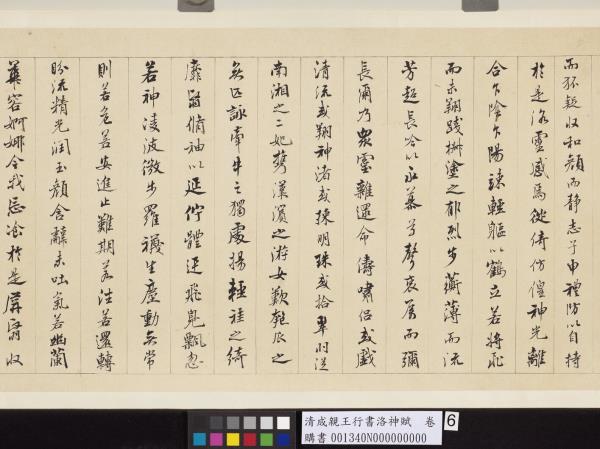 而狐疑收和顏而靜志兮申禮防以自持
於是洛靈感焉徙倚仿偟神光離
合乍陰乍陽竦輕軀以鶴立若將飛
而未翔踐椒塗之郁烈步蘅薄而流
芳超長吟以永慕兮聲哀厲而彌
長爾乃眾靈雜遝命儔嘯侶或戲
清流或翔神渚或採明珠或拾翠羽從
南湘之二妃攜漢濱之游女歎匏瓜之
無匹詠牽牛之獨處揚輕袿之綺
靡翳脩袖以延佇體迅飛鳧飄忽
若神凌波微步羅襪生塵動無常
則若危若安進止難期若往若還轉
盼流精光潤玉顏含辭未吐氣若幽蘭
華容婀娜令我忘飡於是屏翳收
清成親王行書洛神賦 卷 6
購書 001340N000000000